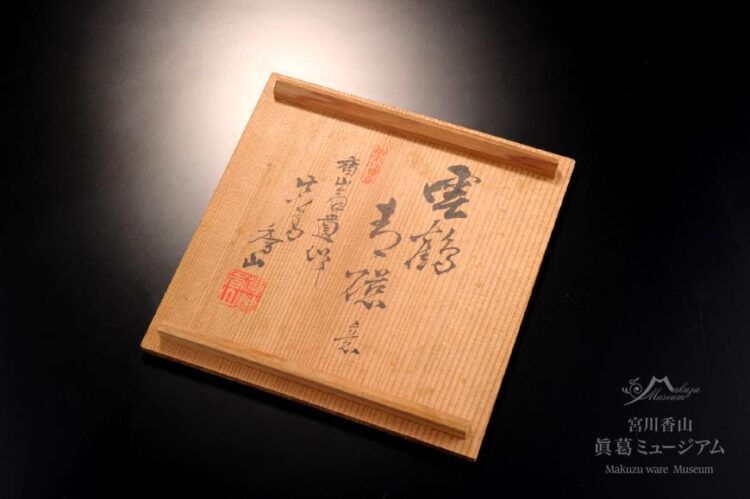 雲鶴
青磁
意
香山翁遺作
真葛
香山
Makuzu
Museum
宮川香山
眞葛ミュージアム
Makuzu ware Museum